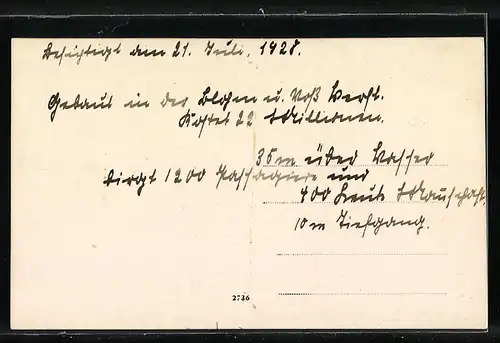 Besichtigt am 21. Juli. 1928.
Gebaut in der Blohm u. Voß Werft.
Kostet 22 Millionen.
35 m über Wasser
Birgt 1200 Passagiere und
400 Leute Mannschaft.
10 m Tiefgang.
2736